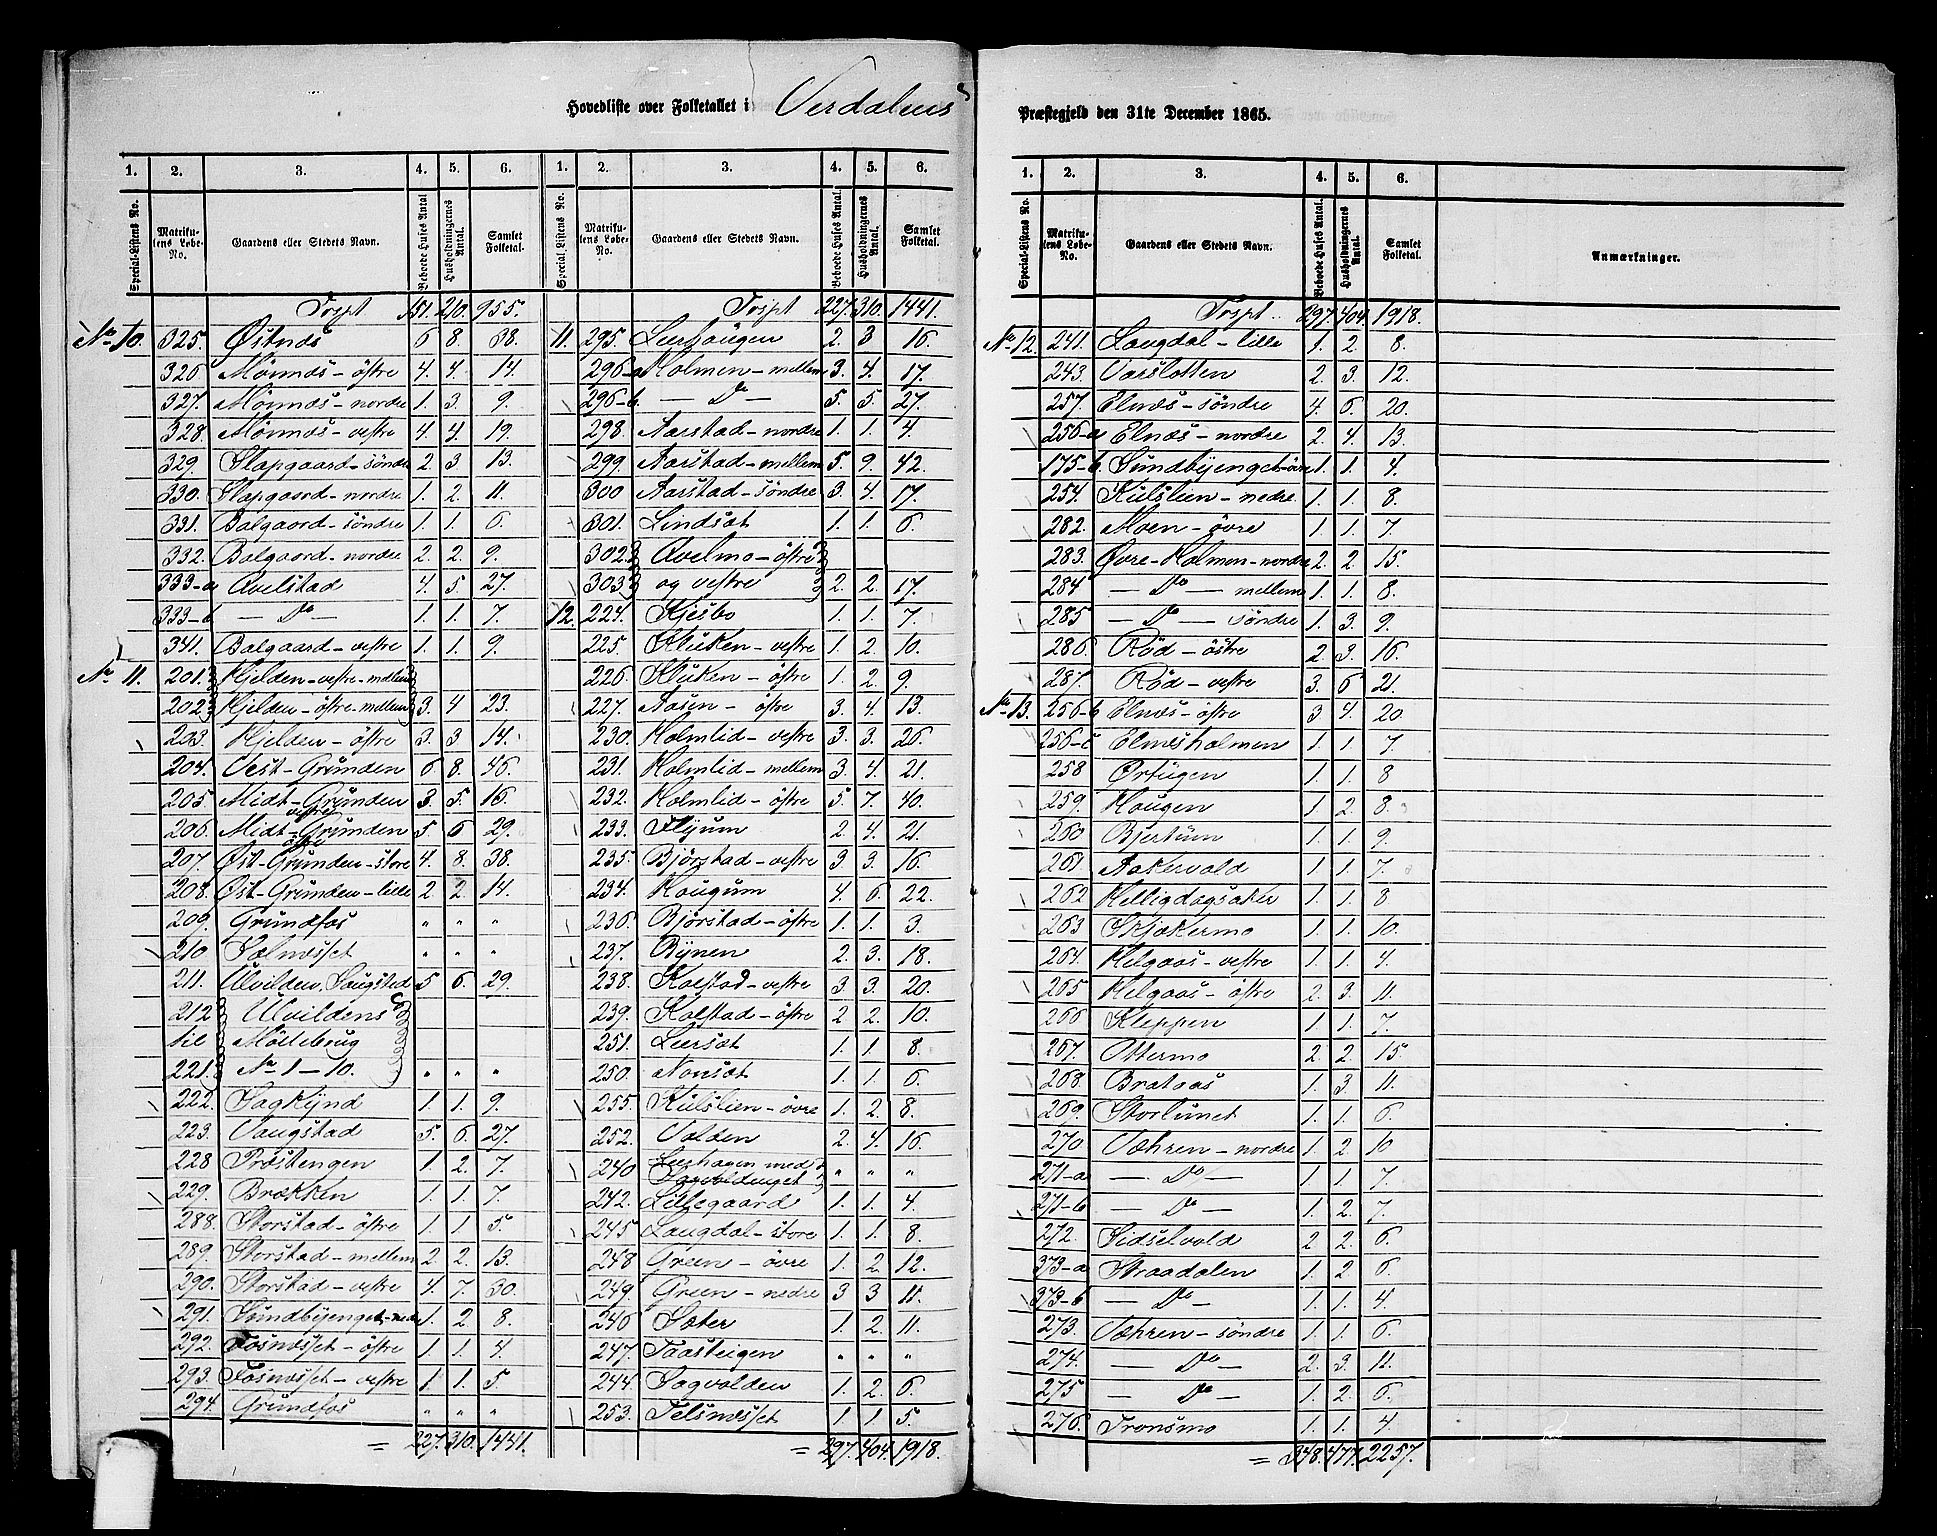 Hovedliste over Folketallet i Verdalens
Præstegjeld den 31te December 1865.
1. 2. 3. 4. 5. 6.
Special-Listens No. Matrikulens Løbe-No. Gaardens eller Stedets Navn. Beboede Huses Antal Husholdningernes Antal. Samlet Folketal.
Trspt 151. 210. 955.
No 10. 325. Østnæs 6 8. 38.
326. Mönnæs - östre 4. 4. 14.
327. Mönnæs - nordre 1. 3. 9.
328. Mönnæs - vestre 4. 4. 19.
329. Slapgaard - söndre 2. 3. 13.
330. Slapgaard - nordre 1. 2. 11.
331. Balgaard - söndre 1. 1. 6.
332. Balgaard - nordre 2. 2. 9.
333-a Auelstad 4. 5. 27.
333-b — Do — 1. 1. 7.
341. Balgaard - vestre 1. 1. 9.
No 11. 201. Hjelden - vestre - mellem
202. Hjelden - östre - mellem 3. 4 23.
203. Hjelden - östre 3. 3 14.
204. Vest-Grunden 6. 8. 46.
205. Midt-Grunden vestre 3. 5. 16.
206. Midt-Grunden östre 5 6 29.
207. Øst-Grunden - store 4. 8. 38.
208. Øst-Grunden - lille 2 2. 14.
209. Grundfos " " "
210 Sælnæsset " " "
211. Ulvilden, Saugstad 5 6. 29.
212 Ulvildens
til Möllebrug
221. No 1-10. " " "
222. Sagkynd 1. 1. 9.
223. Vaugstad 5. 6. 27.
228 Præstengen 1. 2. 7.
229. Brækken 1. 1. 7.
288. Storstad - östre 1. 1 5.
289. Storstad - mellem 2. 2. 13.
290. Storstad - vestre 4. 7. 30.
291. Sundbyenget - nedre 1. 2 8.
292. Fosnæsset - östre 1. 1 4.
293. Fosnæsset - vestre 1 1. 5.
294. Grundfos " " "
= 227. 310. 1441.
1. 2. 3. 4. 5. 6.
Special Listens No. Matrikulens Løbe-No. Gaardens eller Stedets Navn. Beboede Huses Antal. Husholdningernes Antal. Samlet Folketal.
Trspt 227. 310. 1441.
11. 295. Leerhaugen 2. 3 16.
296-a Holmen - mellem 3. 4. 17.
296-b. — Do — 5. 5. 27.
298. Aarstad - nordre 1. 1. 4.
299. Aarstad - mellem 5. 9. 42.
300 Aarstad - söndre 3. 4. 17.
301. Lindsæt 1. 1. 6.
302. Avelmo - östre
303. og vestre 2. 2. 17.
12. 224. Kjesbo 1. 1. 7.
225. Kluken - vestre 1. 2. 10.
226. Kluken - östre 1. 2. 9.
227. Aasen - östre 3. 4. 13.
230. Holmlid - vestre 3. 3. 26.
231. Holmlid - mellem 3. 4. 21.
232. Holmlid - östre 5. 7. 40.
233. Fljum 2. 4. 21.
235. Bjørstad - vestre 3 3. 16.
234. Haugum 4. 6. 22.
236. Bjørstad - östre 1. 1. 3.
237. Bynen 2. 3. 18.
238. Kolstad - vestre 3. 3. 20.
239. Kolstad - östre 2 2. 10.
251. Leersæt 1. 1. 8.
250. Nonsæt 1. 1. 6.
255. Kulslien - övre 1. 2. 8.
252. Volden 2. 4. 16.
240 Leerhagen med Sagvoldenget " " "
242. Lillegaard 1. 1. 4.
245 Laugdal - store 1. 1. 8.
248 Green - övre 1. 2. 12.
249. Green - nedre 3 3 11.
246 Sæter 1. 2. 11.
247. Taasteigen " " "
244. Sagvolden 1. 2. 6.
253. Telsnæsset 1. 1. 5.
= 297. 404. 1918.
1. 2. 3. 4. 5. 6.
Special-Listens No. Matrikulens Løbe-No. Gaardens eller Stedets Navn. Beboede Huses Antal. Husholdningernes Antal. Samlet Folketal. Anmærkninger.
Trspt. 297. 404. 1918.
No 12. 241. Laugdal - lille 1. 2. 8.
243. Varslotten 2. 3. 12.
257. Elnæs - söndre 4. 6. 20.
256-a Elnæs - nordre 2. 4. 13.
175-b Sundbyenget - övre 1. 1. 4.
254. Kulslien - nedre 1. 1. 8.
282. Moen - övre 1. 1. 7.
283. Øvre-Holmen - nordre 2. 2. 15.
284 — Do — mellem 1. 1. 8.
285 — Do — söndre 1. 3. 9.
286. Röd - östre 2. 3. 16.
287. Röd - vestre 3. 6. 21.
No 13. 256-b Elnæs - östre 3 4. 20.
256-c Elnesholmen 1. 1. 7.
258 Ørtugen 1. 1. 8
259. Haugen 1. 2. 8.
260 Bjertum 1. 1. 9.
261. Aakervold 1. 1. 7.
262 Helligdagsaker 1. 1. 8
263 Skjækermo 1. 1. 10.
264. Helgaas - vestre 1. 1. 4.
265 Helgaas - östre 2. 3. 11.
266 Kleppen 1. 1. 7.
267. Ottermo 2. 2. 15.
268. Brataas 1. 3. 11.
269. Storlunet 1. 1. 6.
270 Væhren - nordre 1. 2. 10
271-a — Do — 1. 1. 7.
271-b — Do — 1. 2. 7.
272. Sidselvold 2. 2. 6.
373-a Straadalen 1. 2. 6.
373-b — Do — 1. 1. 4.
273. Væhren - söndre 1. 1. 6.
274. — Do — 2. 3. 11.
275 — Do — 1. 2. 6.
276. Tronsmo 1. 1. 4.
= 348. 477. 2257.